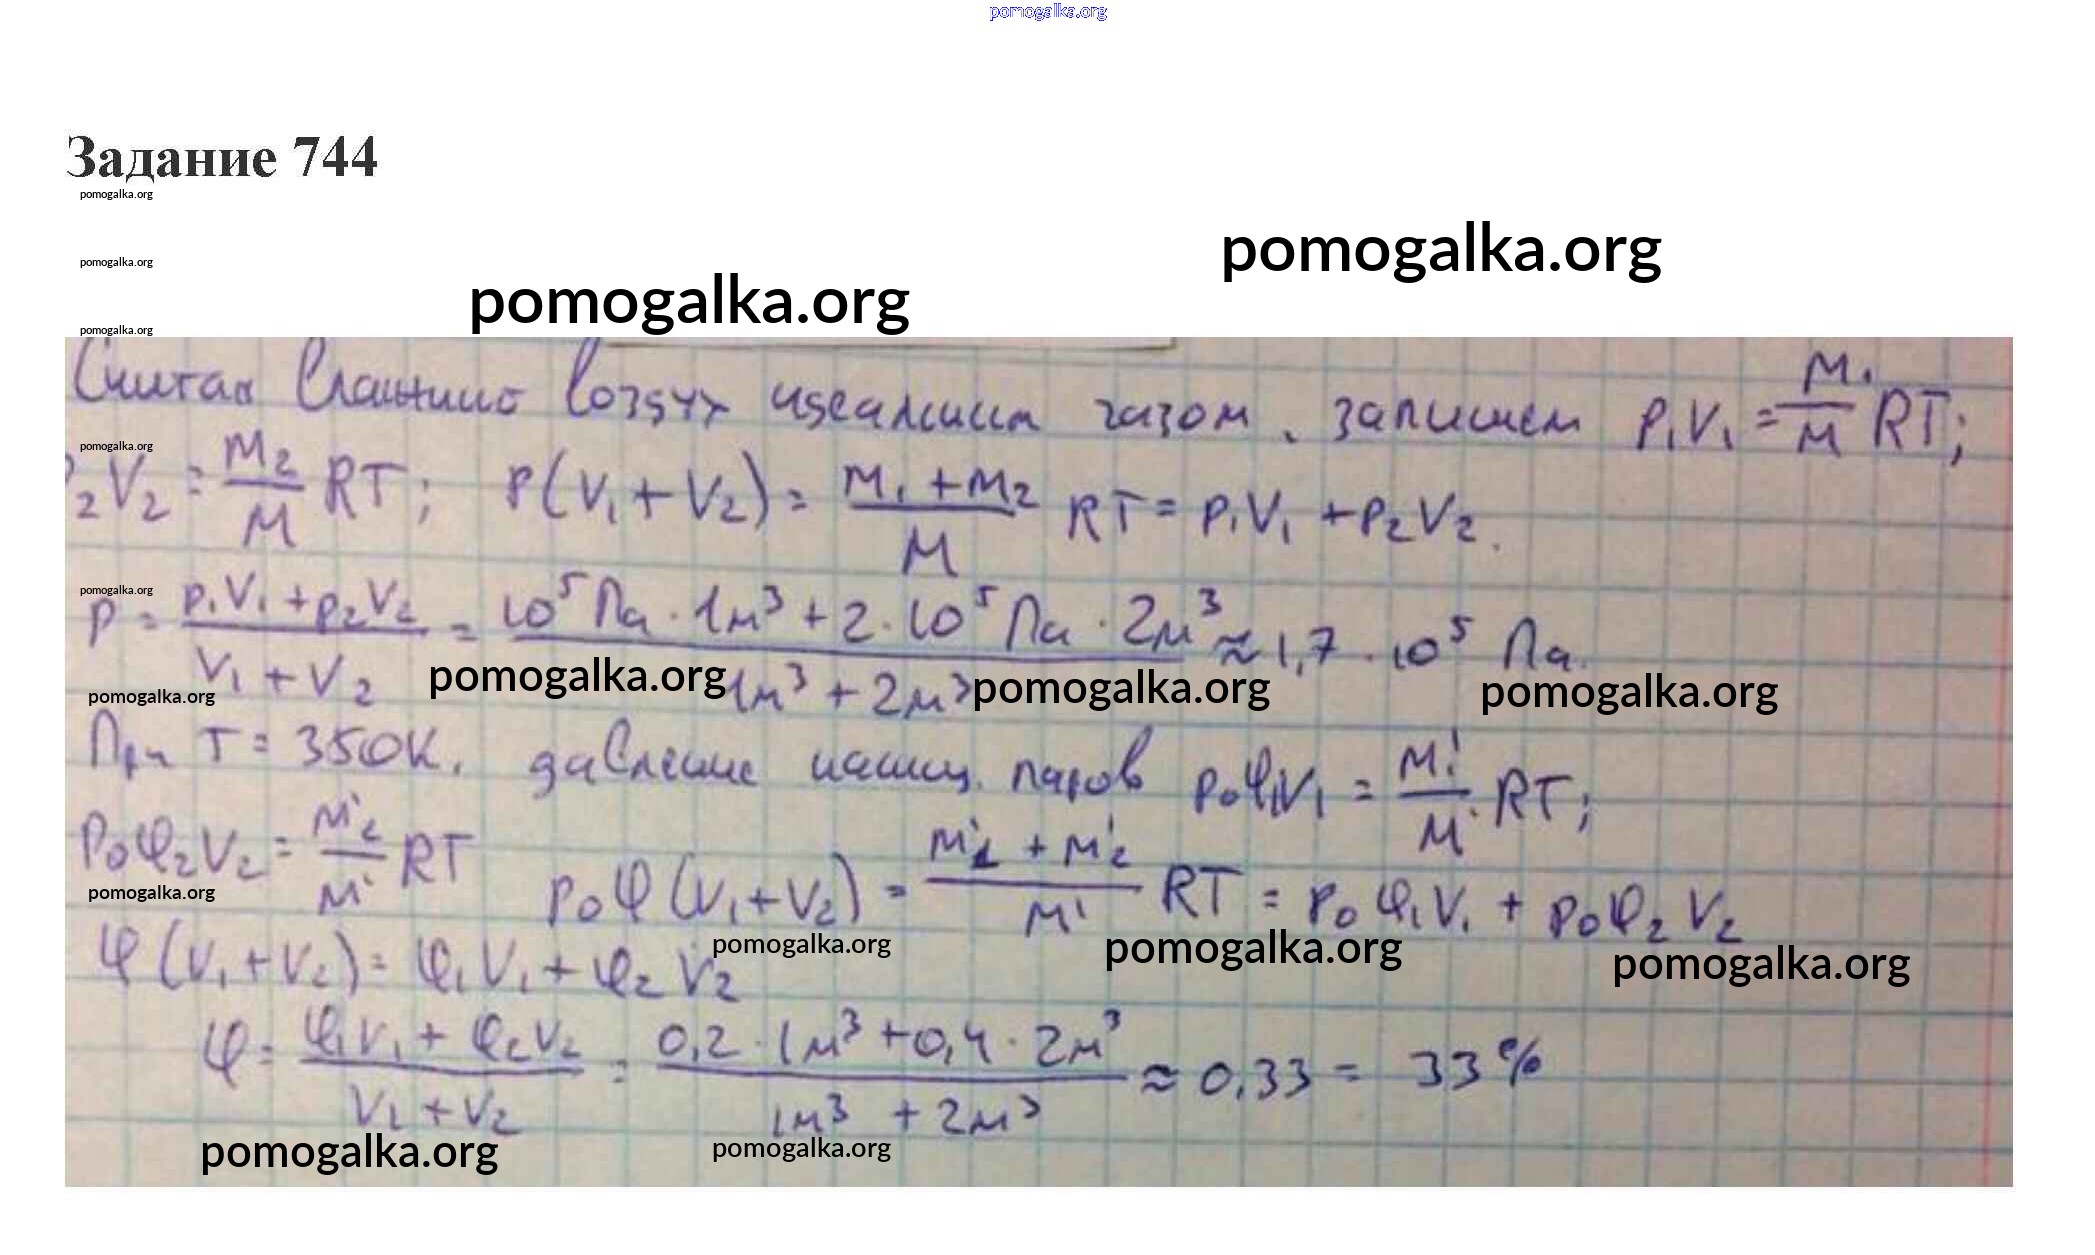 pomogalka.org
Задание 744
pomogalka.org
pomogalka.org
pomogalka.org
pomogalka.org
pomogalka.org
Считая влажный воздух идеальным газом, запишем p₁V₁ = m₁/M RT;
pomogalka.org
p₂V₂ = m₂/M RT; p(V₁ + V₂) = (m₁ + m₂)/M RT = p₁V₁ + p₂V₂.
pomogalka.org
p = (p₁V₁ + p₂V₂)/(V₁ + V₂) = (10⁵ Па · 1м³ + 2 · 10⁵ Па · 2м³)/(1м³ + 2м³) ≈ 1,7 · 10⁵ Па.
pomogalka.org pomogalka.org pomogalka.org pomogalka.org
При T = 350К, давление насыщ. паров p₀φ₁V₁ = m₁'/M' RT;
p₀φ₂V₂ = m'₂/M' RT p₀φ(V₁ + V₂) = (m'₁ + m'₂)/M' RT = p₀φ₁V₁ + p₀φ₂V₂
pomogalka.org
pomogalka.org pomogalka.org pomogalka.org
φ(V₁ + V₂) = φ₁V₁ + φ₂V₂
φ = (φ₁V₁ + φ₂V₂)/(V₁ + V₂) = (0,2 · 1м³ + 0,4 · 2м³)/(1м³ + 2м³) ≈ 0,33 = 33%
pomogalka.org pomogalka.org